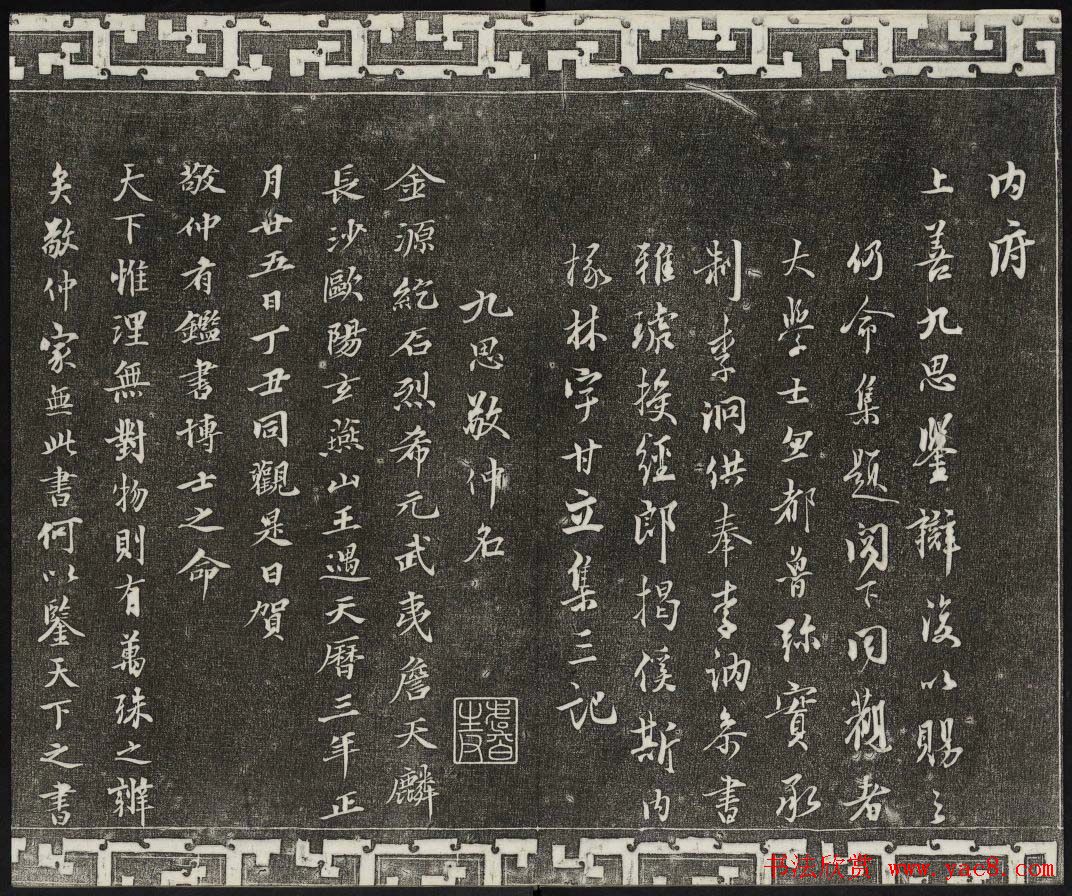 内府
上善九思鑒辯復以賜之
仍命集題閣下同觀者
大學士忽都魯弥實承
制李泂供奉李訥參書
雅琥授經郎揭傒斯内
掾林宇甘立集三記
九思敬仲名
金源紇石烈希元武夷詹天麟
長沙歐陽玄燕山王遇天曆三年正
月廿五日丁丑同觀是日賀
敬仲有鑑書博士之命
天下惟理無對物則有萬殊之辨
矣敬仲家無此書何以鑒天下之書
书法欣赏 www.yac8.com